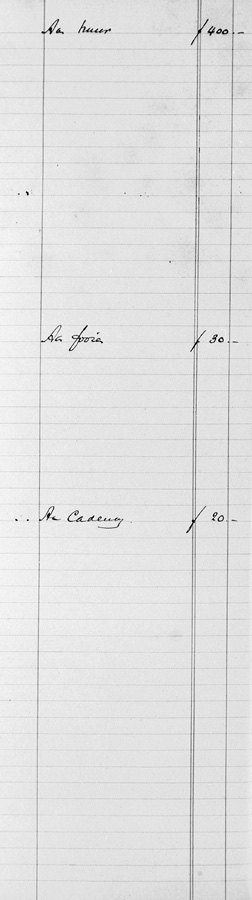 Aan huur f 400.-
Aan fooien f 30.-
.. Aan Cadeaux f 20.-